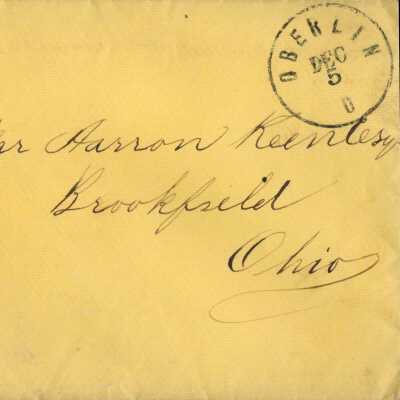 OBERLIN
DEC
5
O
Mr Aarron Keen Esq
Brookfield
Ohio